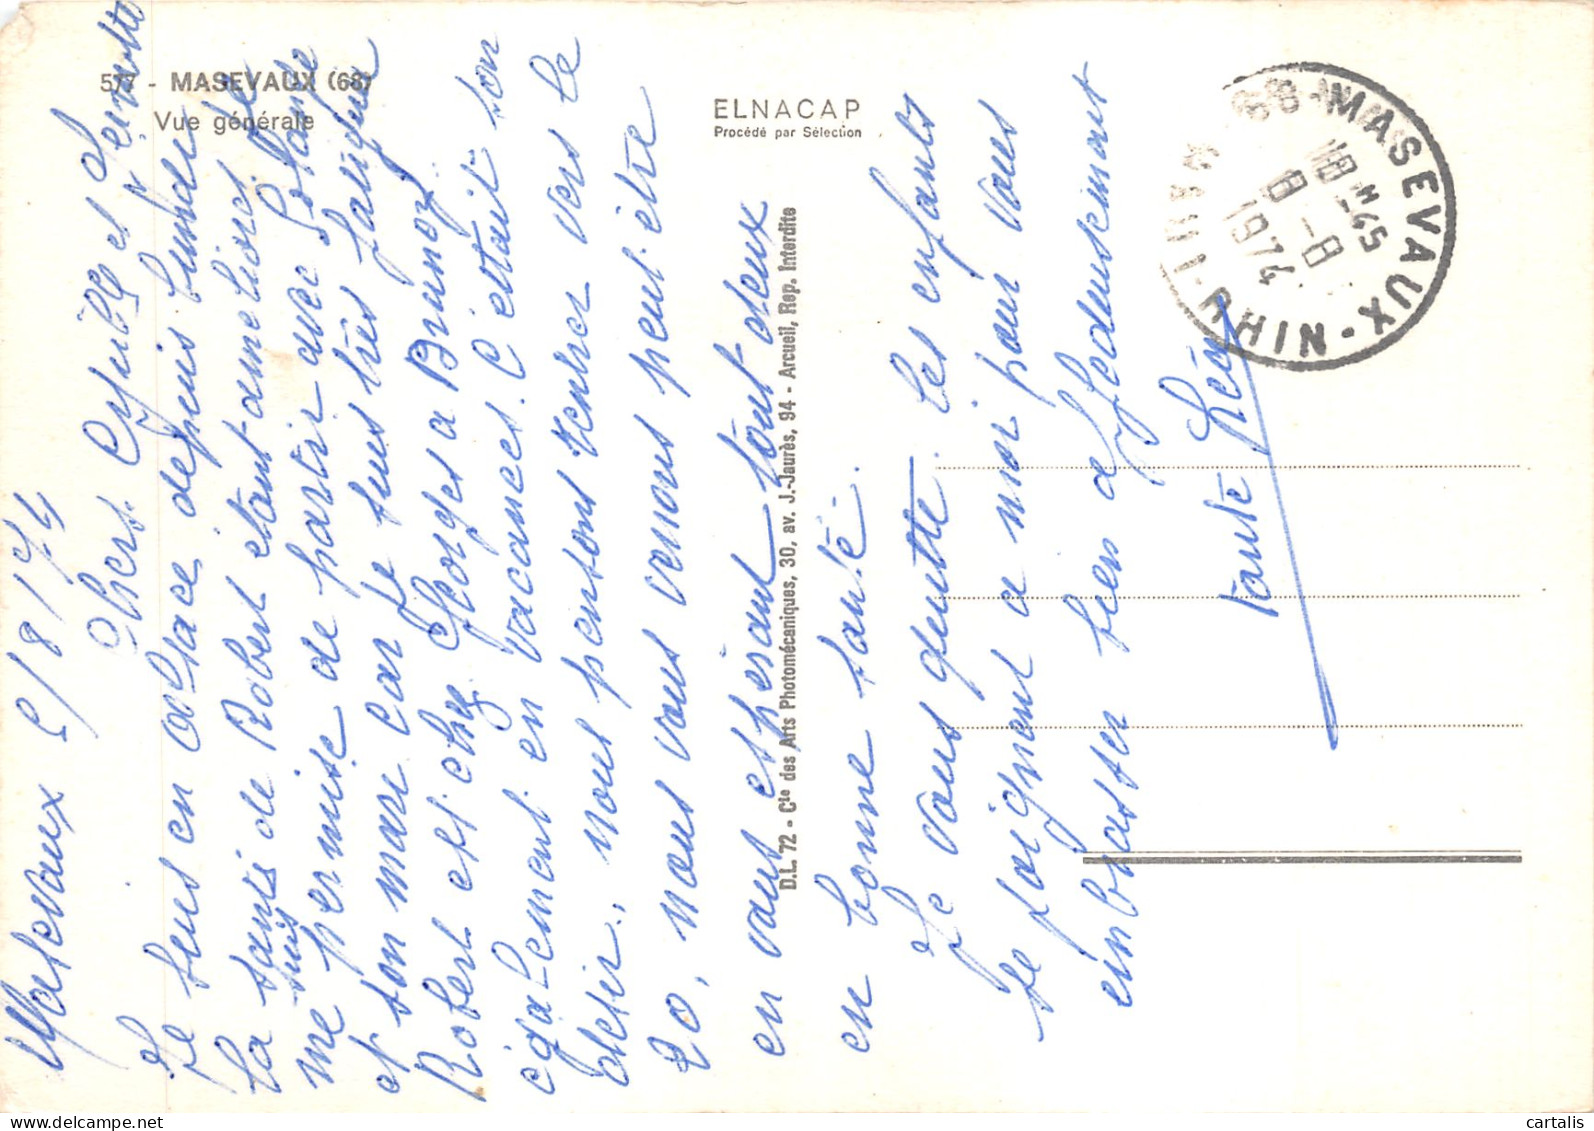 577 - MASEVAUX (68)
Vue générale
ELNACAP
Procédé par Sélection
D.L. 72 - Cie des Arts Photomécaniques, 30, av. J.-Jaurès, 94 - Arcueil, Rep. Interdite
68 MASEVAUX-NIHV
18H45
8-8
1974
Masevaux 8/74
Chers et
Je suis en alsace depuis lundi
la santé de Robert étant amelioré. Je
me suis permise de partir avec Solange
et son mari car je suis très fatiguée
Robert est chez Georges a Brunoy.
egalement en vacances. C'etait son
desir, nous pensons rentrer vers le
20, nous vous verrons peut être
en vous esperant tout deux
en bonne santé.
Je vous quitte. Les enfants
se joignent a moi pour vous
embrasser bien affectueusement
tante